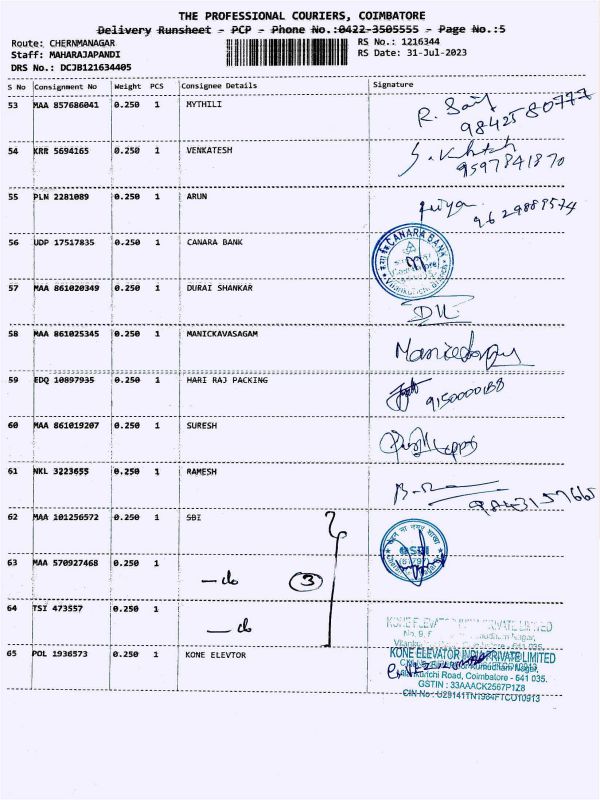 THE PROFESSIONAL COURIERS, COIMBATORE
Delivery Runsheet - PCP - Phone No.:0422-3505555 - Page No.:5
Route: CHERNMANAGAR RS No.: 1216344
Staff: MAHARAJAPANDI RS Date: 31-Jul-2023
DRS No.: DCJB121634405
S No Consignment No Weight PCS Consignee Details Signature
53 MAA 857686041 0.250 1 MYTHILI
9842580777
54 KRR 5694165 0.250 1 VENKATESH
9597841870
55 PLN 2281089 0.250 1 ARUN
9629889574
56 UDP 17517835 0.250 1 CANARA BANK
CANARA BANK
57 MAA 861020349 0.250 1 DURAI SHANKAR
58 MAA 861025345 0.250 1 MANICKAVASAGAM
59 EDQ 10897935 0.250 1 HARI RAJ PACKING
60 MAA 861019207 0.250 1 SURESH
61 NKL 3223655 0.250 1 RAMESH
62 MAA 101256572 0.250 1 SBI
SBI
63 MAA 570927468 0.250 1 -do 3
64 TSI 473557 0.250 1 -do
KONE ELEVATOR INDIA PRIVATE LIMITED
65 POL 1936573 0.250 1 KONE ELEVTOR
KONE ELEVATOR INDIA PRIVATE LIMITED
Vilankurichi Road, Coimbatore - 641 035.
GSTIN : 33AAACK2567P1Z8
CIN No : U29141TN1984FTC010913